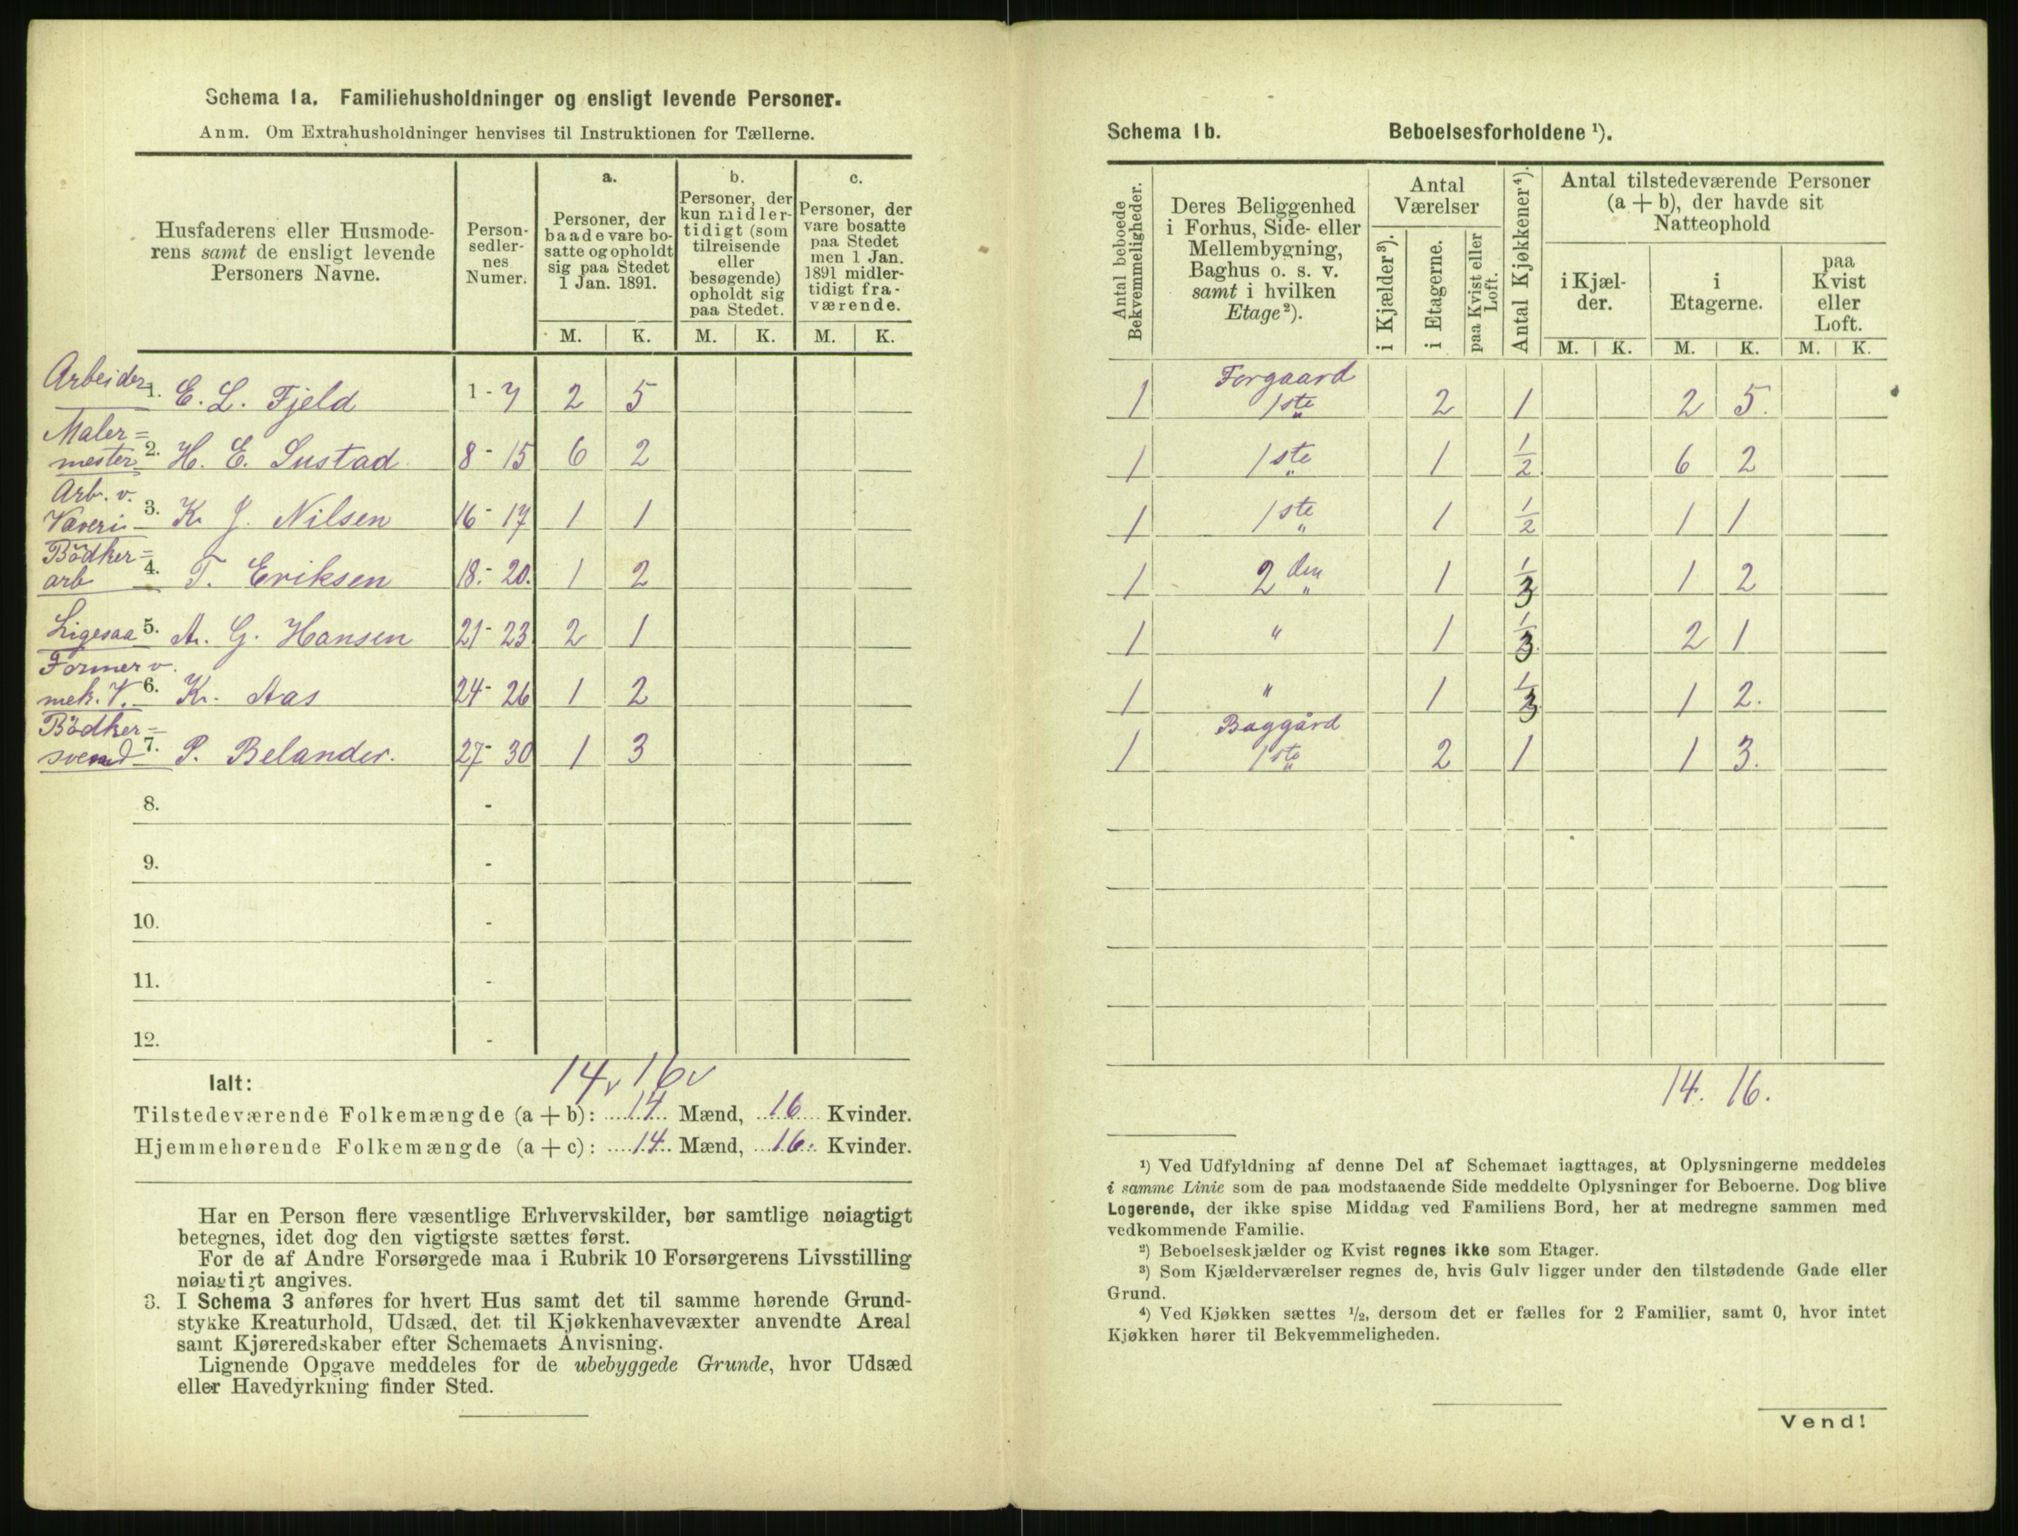 Schema 1a. Familiehusholdninger og ensligt levende Personer.
Anm. Om Extrahusholdninger henvises til Instruktionen for Tællerne.
Husfaderens eller Husmoderens samt de ensligt levende Personers Navne.
Person-sedler-nes Numer.
a. Personer, der baade vare bosatte og opholdt sig paa Stedet 1 Jan. 1891.
b. Personer, der kun midlertidigt (som tilreisende eller besøgende) opholdt sig paa Stedet.
c. Personer, der vare bosatte paa Stedet men 1 Jan. 1891 midlertidigt fraværende.
M. K. M. K. M. K.
Arbeider 1. E. L. Fjeld 1 - 7 2 5
Maler=mester 2. H. E. Sustad 8 - 15 6 2
Arb. v. Væveri 3. K. J. Nilsen 16 - 17 1 1
Bödker=arb 4. T. Eriksen 18 - 20. 1 2
Ligesaa 5. A. G. Hansen 21 - 23 2 1
Former v. mek. V. 6. Kr. Aas 24 - 26 1 2
Bödker=svend 7. P. Belander. 27 - 30 1 3
8. -
9. -
10. -
11. -
12. -
Ialt: 14 16
Tilstedeværende Folkemængde (a + b): 14 Mænd, 16 Kvinder.
Hjemmehørende Folkemængde (a + c): 14 Mænd, 16 Kvinder.
Har en Person flere væsentlige Erhvervskilder, bør samtlige nøiagtigt
betegnes, idet dog den vigtigste sættes først.
For de af Andre Forsørgede maa i Rubrik 10 Forsørgerens Livsstilling
nøiagtigt angives.
3. I Schema 3 anføres for hvert Hus samt det til samme hørende Grund-
stykke Kreaturhold, Udsæd, det til Kjøkkenhavevæxter anvendte Areal
samt Kjøreredskaber efter Schemaets Anvisning.
Lignende Opgave meddeles for de ubebyggede Grunde, hvor Udsæd
eller Havedyrkning finder Sted.
Schema 1b. Beboelsesforholdene ¹).
Antal beboede Bekvemmeligheder.
Deres Beliggenhed i Forhus, Side- eller Mellembygning, Baghus o. s. v. samt i hvilken Etage²).
Antal Værelser
i Kjælder³).
i Etagerne.
paa Kvist eller Loft.
Antal Kjøkkener⁴).
Antal tilstedeværende Personer (a + b), der havde sit Natteophold
i Kjælder.
i Etagerne.
paa Kvist eller Loft.
M. K. M. K. M. K.
1 Forgaard 1ste 2 1 2 5.
1 1ste 1 1/2 6 2
1 1ste 1 1/2 1 1
1 2den 1 1/3 1 2
1 " 1 1/3 2 1
1 " 1 1/3 1 2.
1 Baggård 1ste 2 1 1 3.
14. 16.
¹) Ved Udfyldning af denne Del af Schemaet iagttages, at Oplysningerne meddeles
i samme Linie som de paa modstaaende Side meddelte Oplysninger for Beboerne. Dog blive
Logerende, der ikke spise Middag ved Familiens Bord, her at medregne sammen med
vedkommende Familie.
²) Beboelseskjælder og Kvist regnes ikke som Etager.
³) Som Kjælderværelser regnes de, hvis Gulv ligger under den tilstødende Gade eller
Grund.
⁴) Ved Kjøkken sættes ¹/₂, dersom det er fælles for 2 Familier, samt 0, hvor intet
Kjøkken hører til Bekvemmeligheden.
Vend!